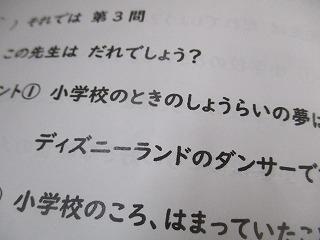 ） それでは 第３問
この先生は だれでしょう？
ント① 小学校のときのしょうらいの夢は
ディズニーランドのダンサーで
小学校のころ、はまっていたこ